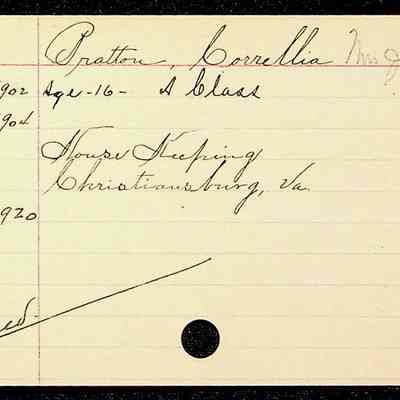 Pratton, Correllia Mrs J
902 Age -16- A Class
904
House Keeping
Christiansburg, Va.
920
ed.